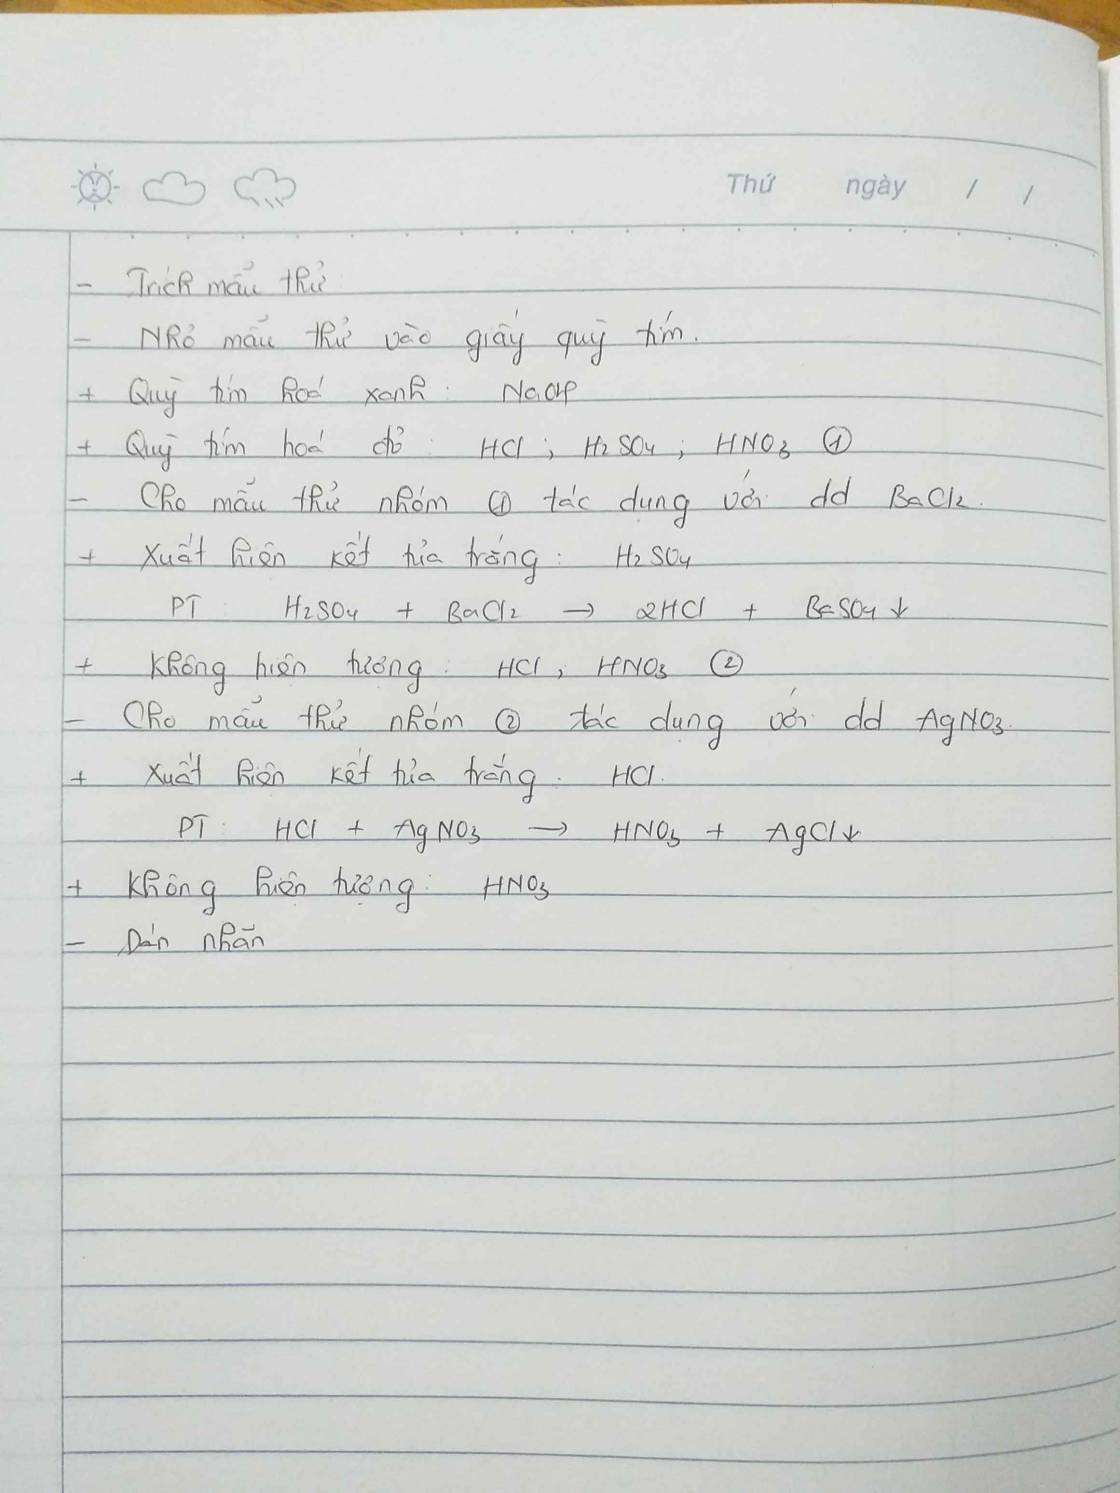 Thứ ngày / /
- Trích mẫu thử
- Nhỏ mẫu thử vào giấy quỳ tím.
+ Quỳ tím hoá xanh: NaOH
+ Quỳ tím hoá đỏ: HCl; H2SO4; HNO3 ①
- Cho mẫu thử nhóm ① tác dụng với dd BaCl2.
+ Xuất hiện kết tủa trắng: H2SO4
PT: H2SO4 + BaCl2 → 2HCl + BaSO4↓
+ Không hiện tượng: HCl, HNO3 ②
- Cho mẫu thử nhóm ② tác dụng với dd AgNO3.
+ Xuất hiện kết tủa trắng: HCl.
PT: HCl + AgNO3 → HNO3 + AgCl↓
+ Không hiện tượng: HNO3
- Dán nhãn